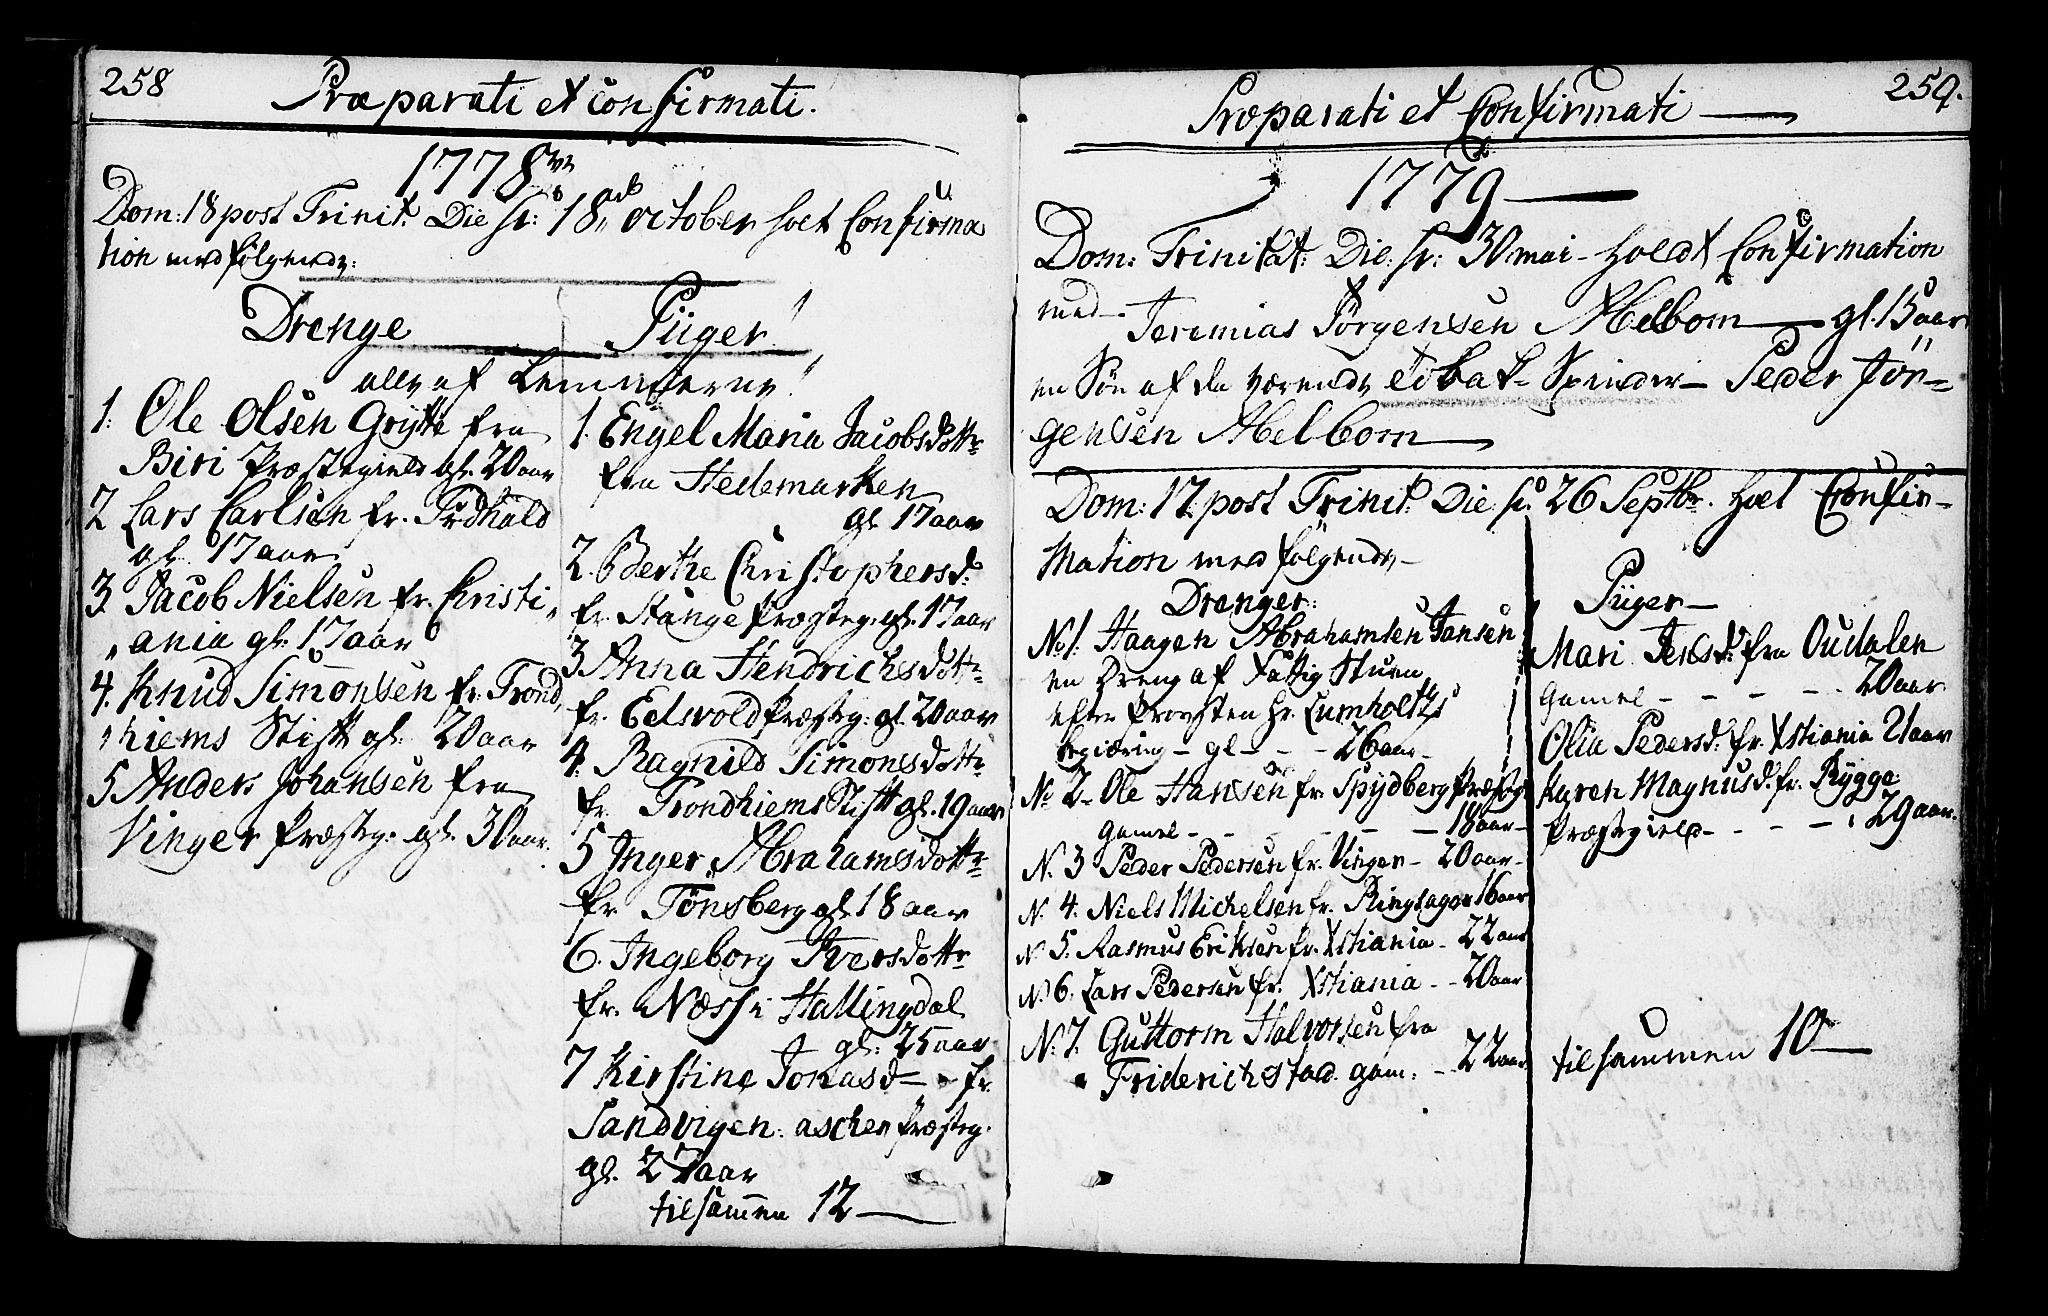 258
Præparati et confirmati.
1778
Dom: 18 post Trinit. Die sc: 18 october holt Confirma
tion med følgende:
Drenge
alle af Lemmerne
1. Ole Olsen Grytte fra
Biri Præstegield gl. 20 aar
2 Lars Carlsen fr. Fridhald
gl. 17 aar
3. Jacob Nielsen fr. Christi
ania gl. 17 aar
4. Knud Simonsen fr. Trond,
hiems Stift gl. 20 aar
5 Anders Johansen fra
Vinger Præstg. gl. 30 aar.
Piiger
1. Engel Maria Jacobsdottr
fra Hedemarken
gl. 17 aar
2. Berthe Christophersd.
fr. Stange Præstg. gl. 17 aar
3 Anna Hendrichsdottr
fr. Edsvold Præstg. gl. 20 aar
4. Ragnild Simonsdottr
fr. Trondhiems Stift gl. 19 aar
5 Inger Abrahamsdottr
fr. Tönsberg gl. 18 aar
6. Ingeborg Iversdottr
fr. Næss i Hallingdal
gl: 25 aar
7 Kirstine Jonasd - fr.
Sandvigen: ascher Præstg.
gl. 27 aar
tilsammen 12
259.
Præparati et Confirmati
1779
Dom: Trinitat: Die: sc: 30 mai - holdt Confirmation
med
Jeremias Jörgensen Melbom gl. 15 aar
en Sön af da værende tobak - Spinder - Peder Jör-
gensen Melbom
Dom: 17. post Trinit. Die sc. 26 Septbr. holt Confir-
Mation med følgende -
Drenger:
No 1. Haagen Abrahamsen Jansen
en Dreng af Fattig Stuen
efter Provsten Hr. Lumholtz's
begiæring - gl - - - 26 aar -
No 2. Ole Hansen fr. Spydberg Præstg.
Gamel - - - - - - 18 aar -
N. 3 Peder Pedersen fr. Vinger - 20 aar -
N. 4. Niels Michelsen fr. Ringsager 16 aar
N. 5. Rasmus Eriksen fr. Xstiania - 22 aar
N. 6. Lars Pedersen fr. Xstiania - - 20 aar
N. 7. Guttorm Halvorsen fra
Friderichstad gam: - - 22 aar
Piiger -
Mari Jensd: fra Oudalen
Gamel - - - - - 20 aar
Olia Pedersd. fr. Xstiania 21 aar
Karen Magnusd. fr. Rygge
Præstegield - - - - - 29 aar.
tilsammen 10